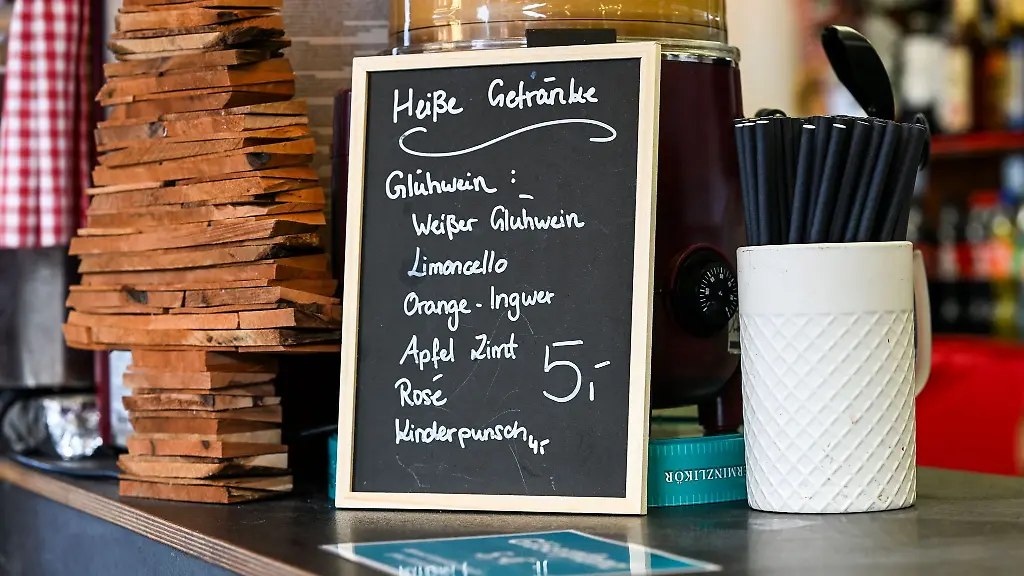 Heiße Getränke
Glühwein :
Weißer Glühwein
Limoncello
Orange-Ingwer
Apfel Zimt
5,-
Rosé
Kinderpunsch 4,-
ERMINZLIKÖR